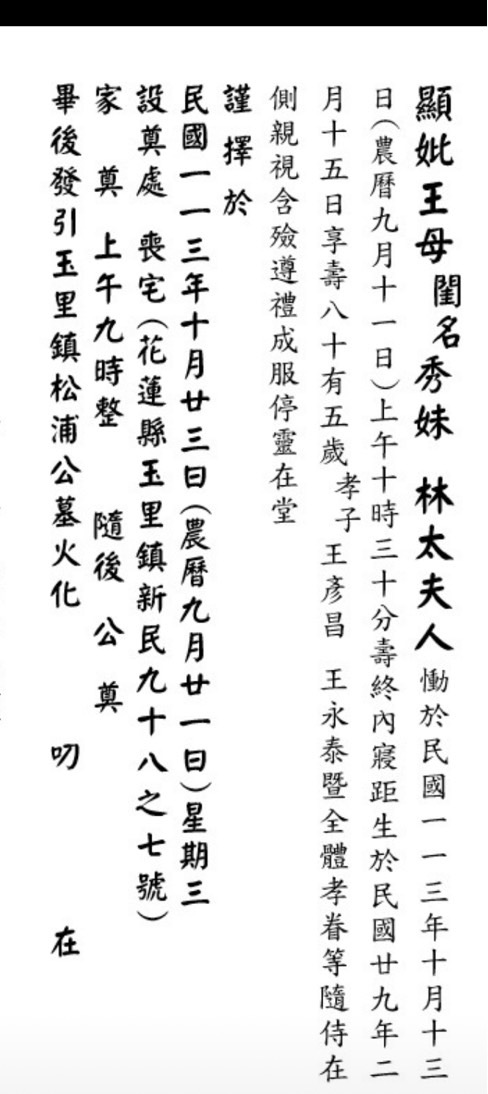 顯妣王母閨名秀妹　林太夫人慟於民國一一三年十月十三
日(農曆九月十一日)上午十時三十分壽終內寢距生於民國廿九年二
月十五日享壽八十有五歲孝子王彥昌　王永泰暨全體孝眷等隨侍在
側親視含殮遵禮成服停靈在堂
謹擇於
民國一一三年十月廿三日(農曆九月廿一日)星期三
設奠處　喪宅(花蓮縣玉里鎮新民九十八之七號)
家　奠　上午九時整　　隨後　公　奠
畢後發引玉里鎮松浦公墓火化　　　叨　　　在